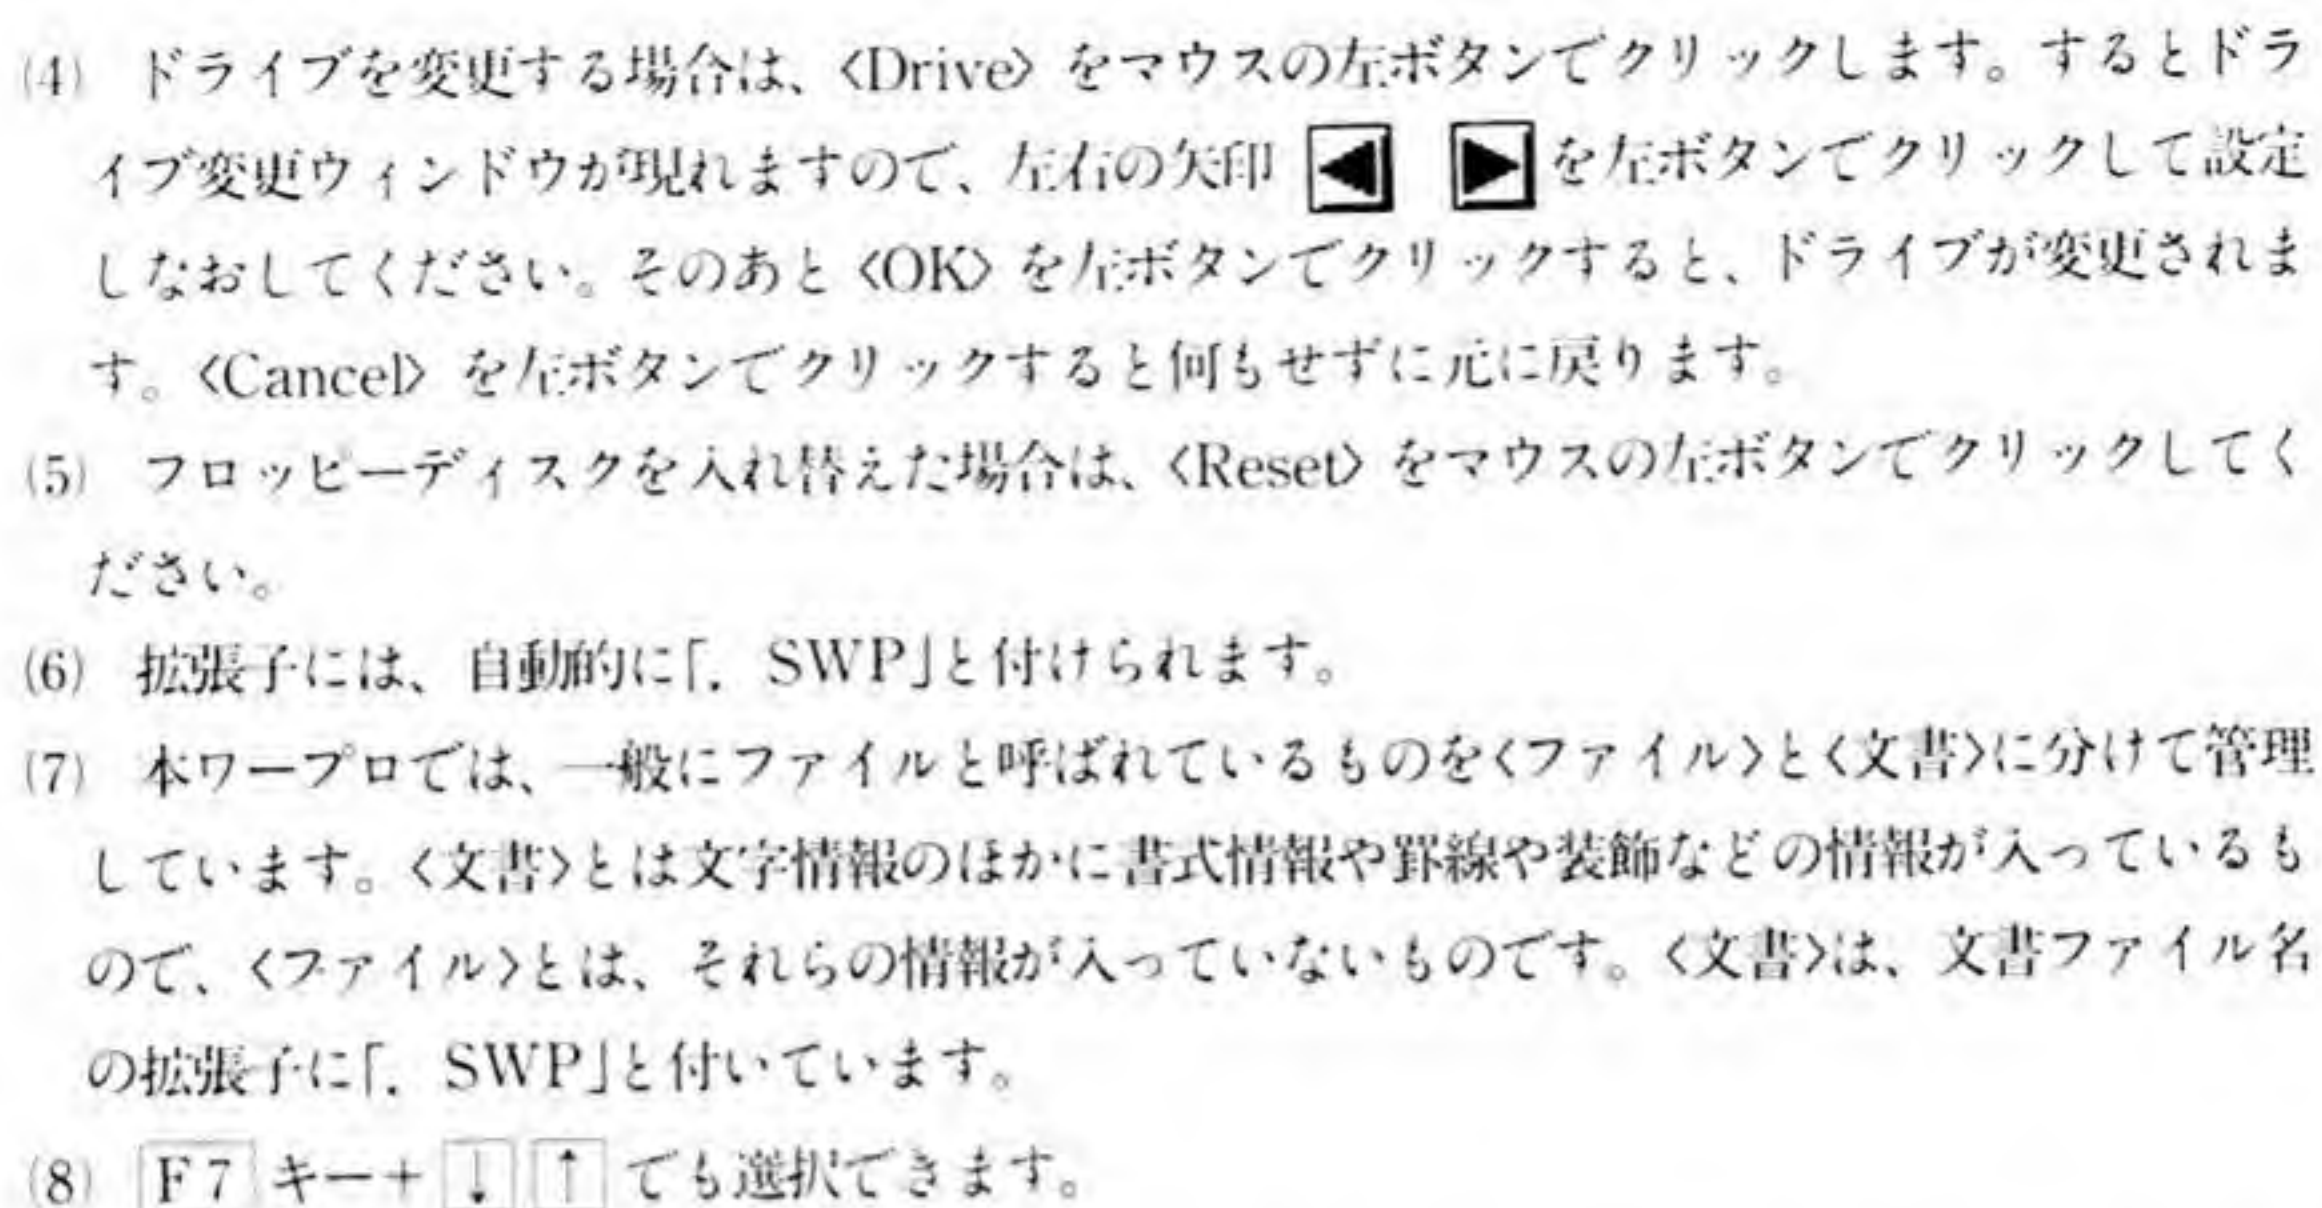 (4) ドライブを変更する場合は、〈Drive〉をマウスの左ボタンでクリックします。するとドラ
イブ変更ウィンドウが現れますので、左右の矢印 ◀ ▶ を左ボタンでクリックして設定
しなおしてください。そのあと〈OK〉を左ボタンでクリックすると、ドライブが変更されま
す。〈Cancel〉を左ボタンでクリックすると何もせずに元に戻ります。
(5) フロッピーディスクを入れ替えた場合は、〈Reset〉をマウスの左ボタンでクリックしてく
ださい。
(6) 拡張子には、自動的に「．SWP」と付けられます。
(7) 本ワープロでは、一般にファイルと呼ばれているものを〈ファイル〉と〈文書〉に分けて管理
しています。〈文書〉とは文字情報のほかに書式情報や罫線や装飾などの情報が入っているも
ので、〈ファイル〉とは、それらの情報が入っていないものです。〈文書〉は、文書ファイル名
の拡張子に「．SWP」と付いています。
(8) F7 キー＋ ↓ ↑ でも選択できます。